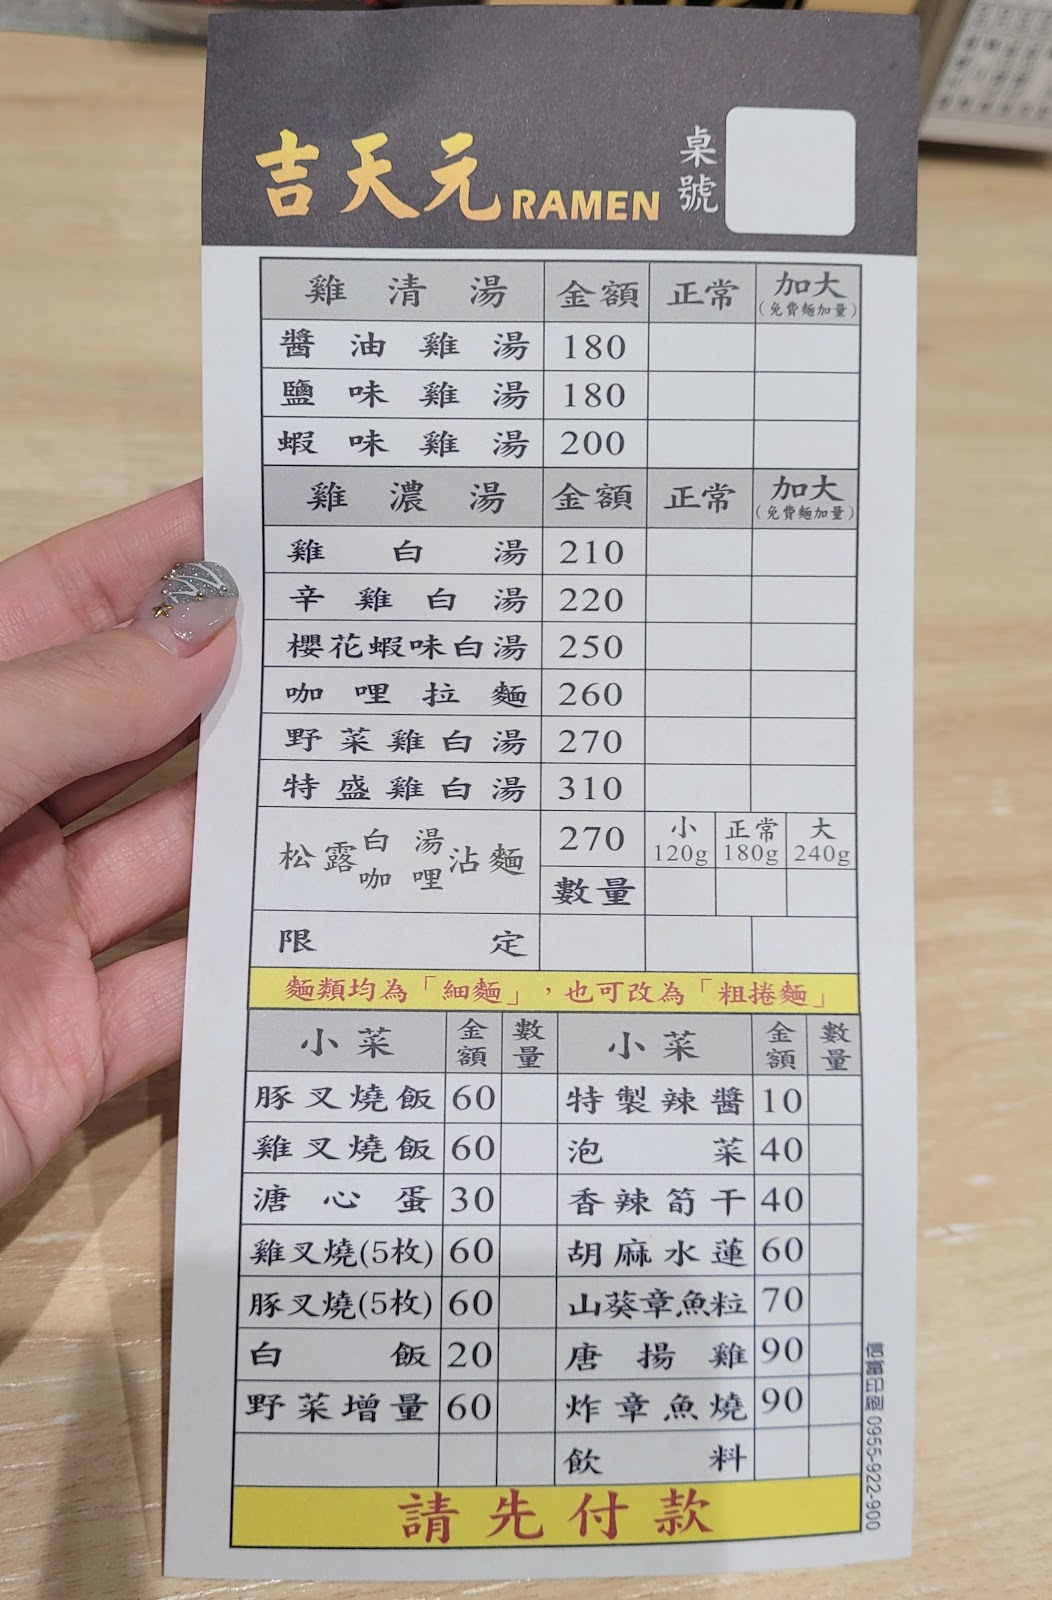 吉天元 RAMEN 桌號
雞清湯 金額 正常 加大(免費麵加量)
醬油雞湯 180
鹽味雞湯 180
蝦味雞湯 200
雞濃湯 金額 正常 加大(免費麵加量)
雞白湯 210
辛雞白湯 220
櫻花蝦味白湯 250
咖哩拉麵 260
野菜雞白湯 270
特盛雞白湯 310
松露白湯咖哩沾麵 270 小120g 正常180g 大240g
數量
限定
麵類均為「細麵」，也可改為「粗捲麵」
小菜 金額 數量 小菜 金額 數量
豚叉燒飯 60 特製辣醬 10
雞叉燒飯 60 泡菜 40
溏心蛋 30 香辣筍干 40
雞叉燒(5枚) 60 胡麻水蓮 60
豚叉燒(5枚) 60 山葵章魚粒 70
白飯 20 唐揚雞 90
野菜增量 60 炸章魚燒 90
飲料
請先付款
信富印刷 0955-922-900